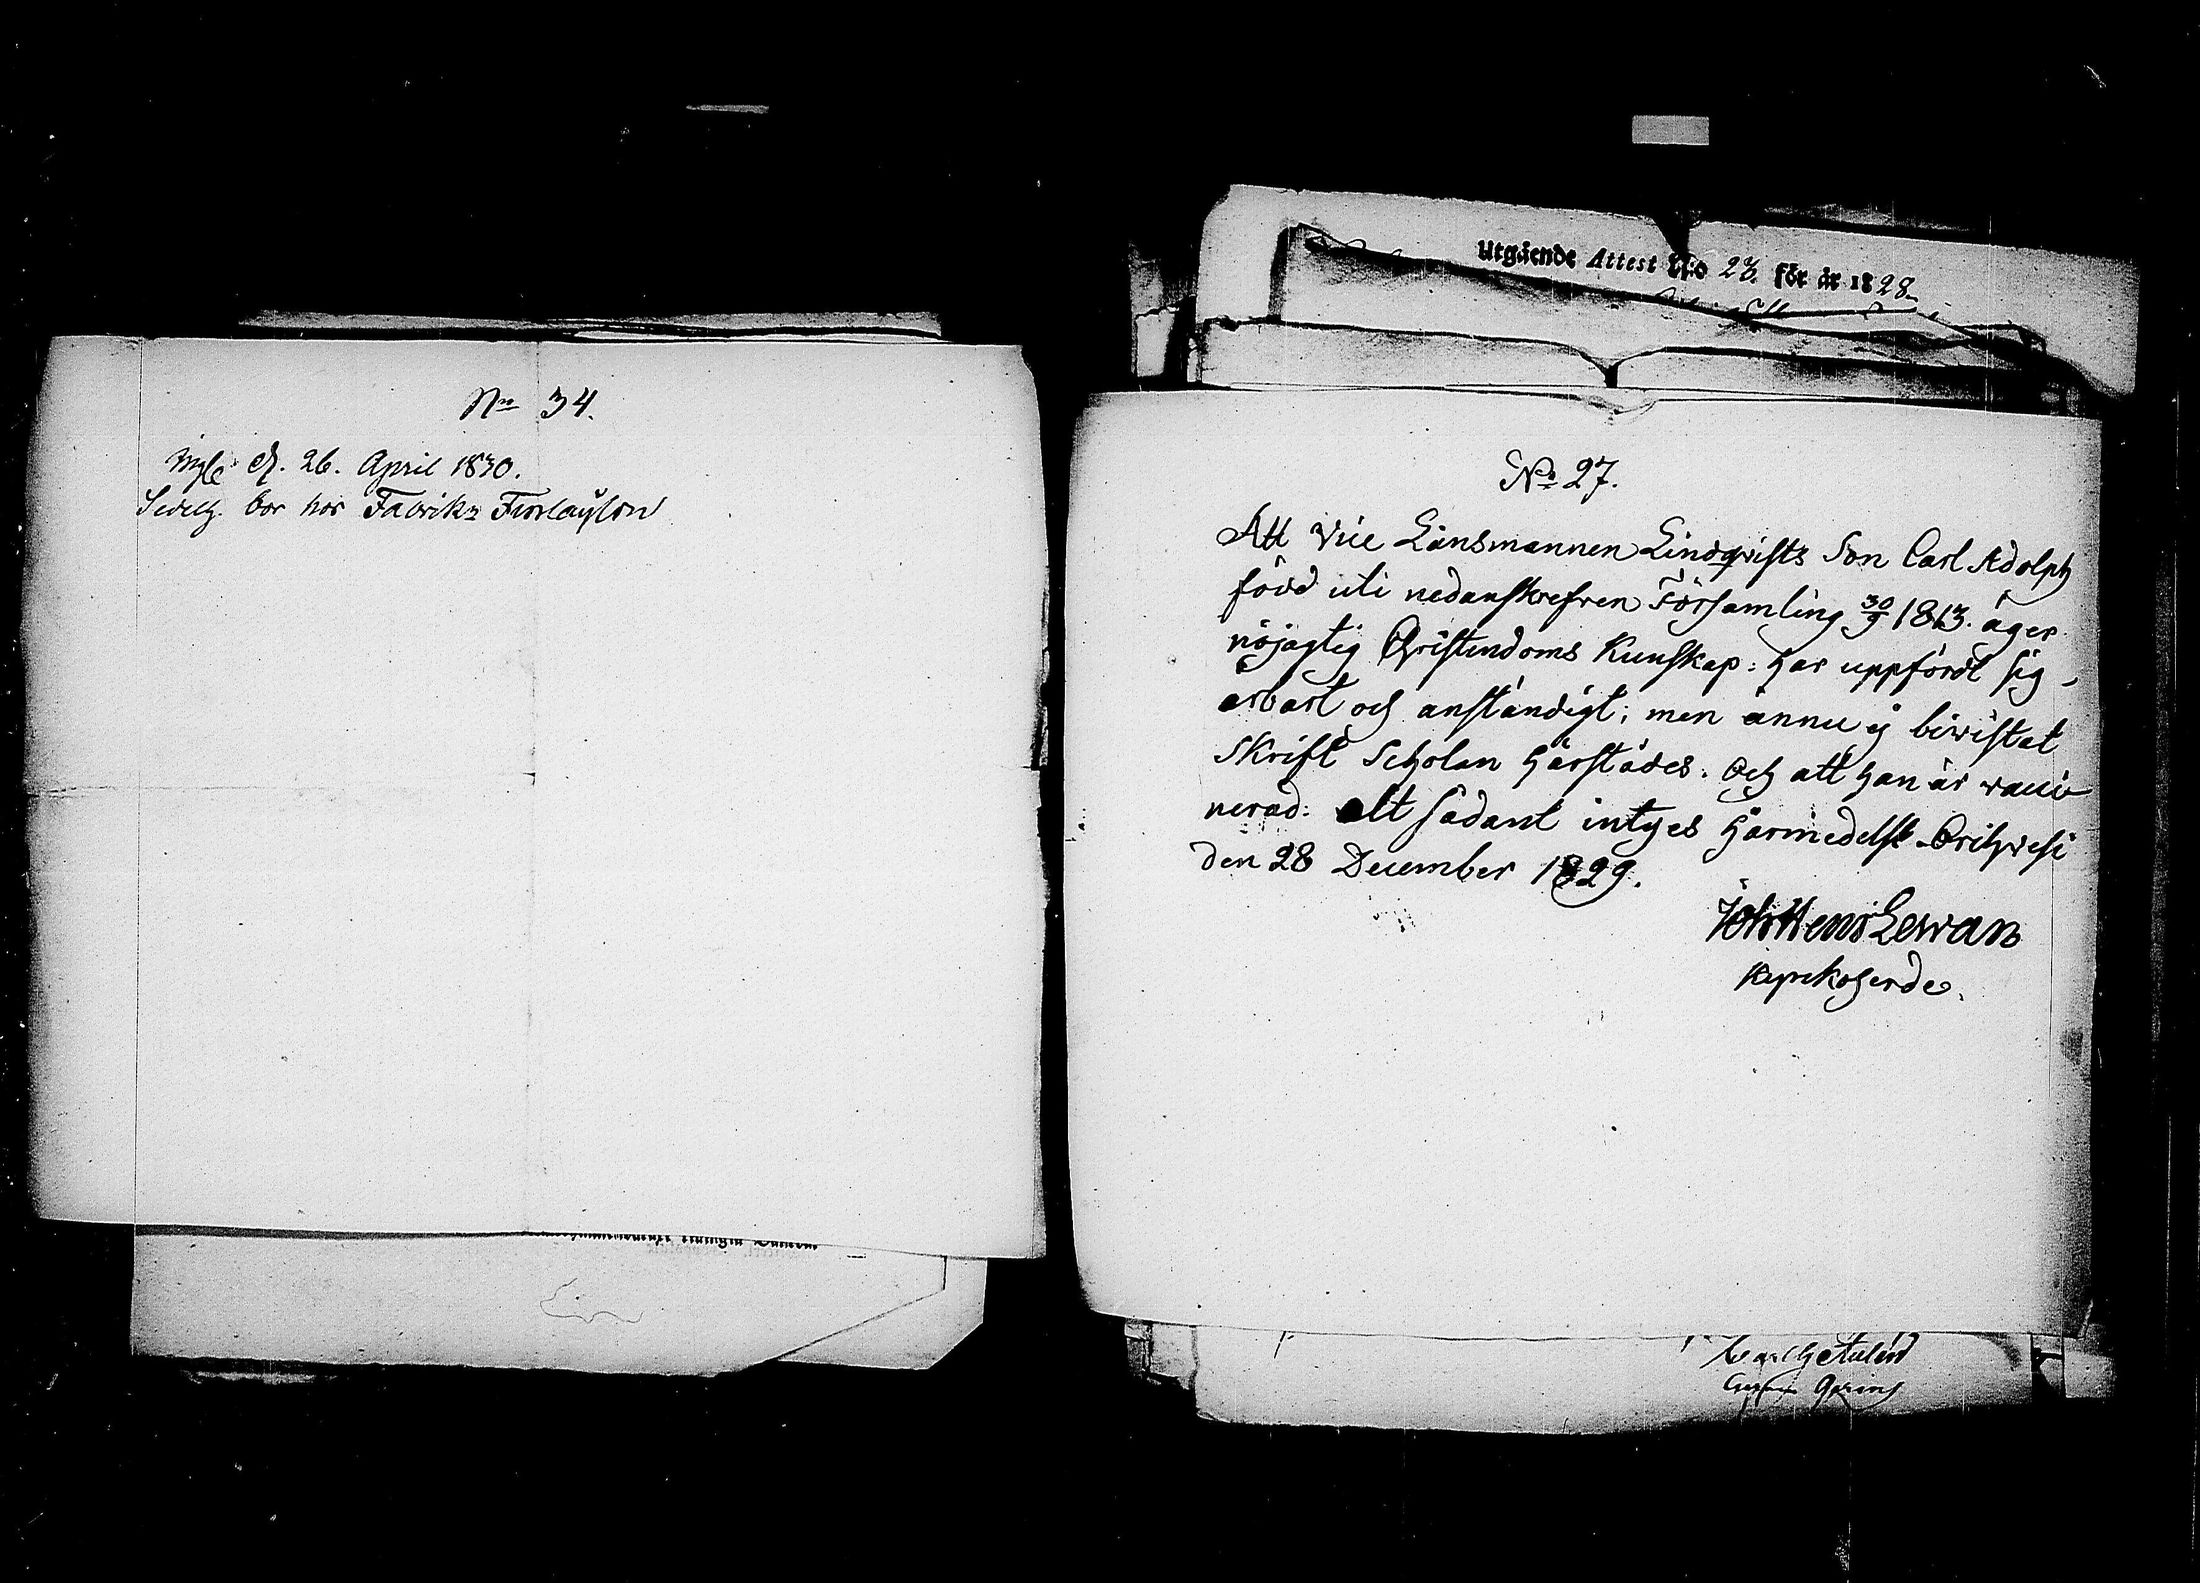 No 34.
Ingk. d. 26. April 1830.
bor hos Fabrikn Finlayson
Utgående Attest N:o 23. för år 1828.
No 27.
Att Vice Länsmannen Lindqvists Son Carl Adolph
född uti nedanskrefven Församling 30/9 1813. äger
nöjagtig Christendoms Kunskap: har uppfördt sig
ärbart och anständigt; men ännu ej biwistat
Skrift Scholan härstädes. Och att han är vacci-
nerad: alt sådant intyges härmedelst. Orihvesi
den 28 December 1829.
Joh: Henr Levvan
Kyrkoherde.